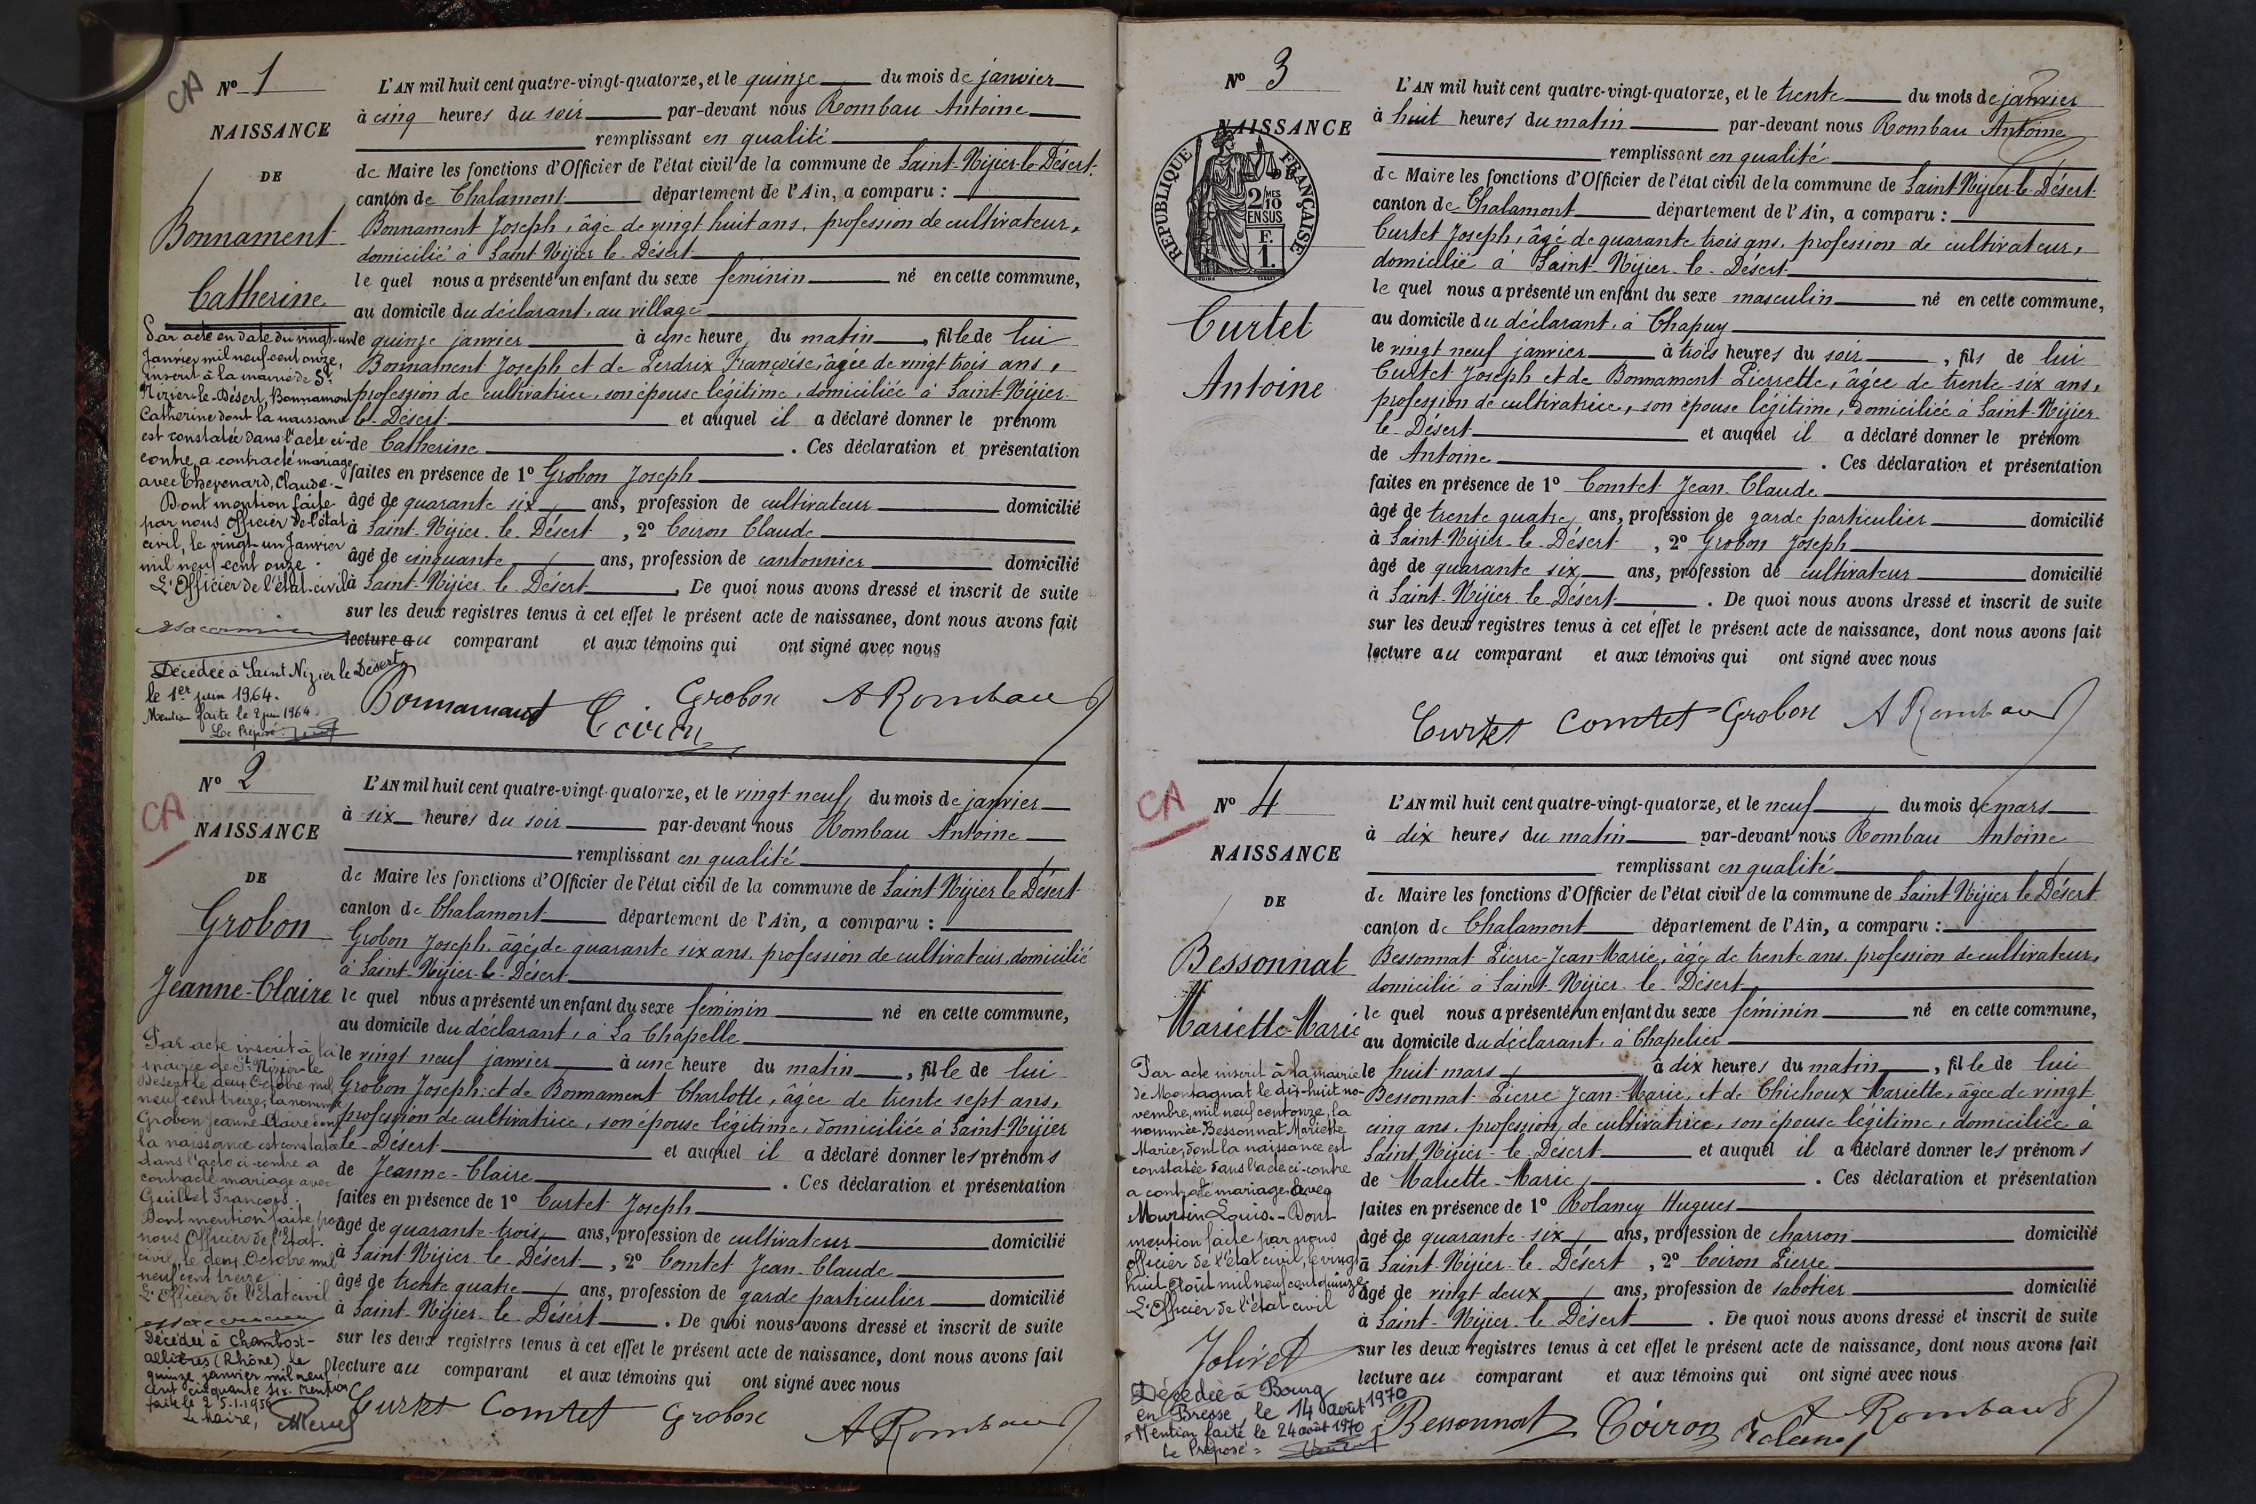 CA
Nº 1
NAISSANCE
DE
Bonnament
Catherine
Par acte en date du vingt-un
Janvier mil neuf cent onze,
inscrit à la mairie de St
Nizier-le-Désert, Bonnament
Catherine dont la naissance
est constatée dans l'acte ci-
contre a contracté mariage
avec Thevenard, Claude.-
Dont mention faite
par nous officier de l'état
civil, le vingt-un Janvier
mil neuf cent onze.
L'Officier de l'état-civil
Décédée à Saint Nizier le Désert
le 1er juin 1964.
Mention faite le 2 juin 1964
Le Préposé
L'AN mil huit cent quatre-vingt-quatorze, et le quinze du mois de janvier
à cinq heures du soir par-devant nous Rombau Antoine
remplissant en qualité
de Maire les fonctions d'Officier de l'état civil de la commune de Saint-Nizier-le-Désert.
canton de Chalamont département de l'Ain, a comparu :
Bonnament Joseph, âgé de vingt huit ans, profession de cultivateur,
domicilié à Saint Nizier le Désert
le quel nous a présenté un enfant du sexe féminin né en cette commune,
au domicile du déclarant, au village
le quinze janvier à une heure du matin, fille de lui
Bonnament Joseph et de Perdrix Françoise, âgée de vingt trois ans,
profession de cultivatrice, son épouse légitime, domiciliée à Saint-Nizier-
le-Désert et auquel il a déclaré donner le prénom
de Catherine . Ces déclaration et présentation
faites en présence de 1º Grobon Joseph
âgé de quarante six ans, profession de cultivateur domicilié
à Saint-Nizier le Désert , 2º Coiron Claude
âgé de cinquante ans, profession de cantonnier domicilié
à Saint-Nizier le Désert. De quoi nous avons dressé et inscrit de suite
sur les deux registres tenus à cet effet le présent acte de naissance, dont nous avons fait
lecture au comparant et aux témoins qui ont signé avec nous
Bonnamant Coiron Grobon A Rombau
CA
Nº 2
NAISSANCE
DE
Grobon
Jeanne-Claire
Par acte inscrit à la
mairie de St Nizier-le
Désert le deux Octobre mil
neuf cent treize, la nommée
Grobon Jeanne Claire dont
la naissance est constatée
dans l'acte ci-contre a
contracté mariage avec
Guillet François.
Dont mention faite par
nous Officier de l'Etat.
civil, le deux Octobre mil
neuf cent treize.
L'Officier de l'état civil
Décédée à Chambost-
Allières (Rhône) le
quinze janvier mil neuf
cent cinquante six. Mention
faite le 25.1.1956
Le Maire,
L'AN mil huit cent quatre-vingt-quatorze, et le vingt neuf du mois de janvier
à six heures du soir par-devant nous Rombau Antoine
remplissant en qualité
de Maire les fonctions d'Officier de l'état civil de la commune de Saint Nizier le Désert
canton de Chalamont département de l'Ain, a comparu :
Grobon Joseph, âgé de quarante six ans, profession de cultivateur, domicilié
à Saint-Nizier-le-Désert
le quel nous a présenté un enfant du sexe féminin né en cette commune,
au domicile du déclarant, à La Chapelle
le vingt neuf janvier à une heure du matin, fille de lui
Grobon Joseph et de Bonnament Charlotte, âgée de trente sept ans,
profession de cultivatrice, son épouse légitime, domiciliée à Saint-Nizier
le-Désert et auquel il a déclaré donner les prénoms
de Jeanne-Claire . Ces déclaration et présentation
faites en présence de 1º Curtet Joseph
âgé de quarante-trois ans, profession de cultivateur domicilié
à Saint-Nizier le Désert, 2º Comtet Jean-Claude
âgé de trente quatre ans, profession de garde particulier domicilié
à Saint-Nizier-le-Désert . De quoi nous avons dressé et inscrit de suite
sur les deux registres tenus à cet effet le présent acte de naissance, dont nous avons fait
lecture au comparant et aux témoins qui ont signé avec nous
Curtet Comtet Grobon A Rombau
Nº 3
NAISSANCE
DE
REPUBLIQUE FRANÇAISE
2/10 MES
EN SUS
F.
1.
Curtet
Antoine
L'AN mil huit cent quatre-vingt-quatorze, et le trente du mois de janvier
à huit heures du matin par-devant nous Rombau Antoine
remplissant en qualité
de Maire les fonctions d'Officier de l'état civil de la commune de Saint-Nizier-le-Désert
canton de Chalamont département de l'Ain, a comparu :
Curtet Joseph, âgé de quarante trois ans, profession de cultivateur,
domicilié à Saint-Nizier-le-Désert
le quel nous a présenté un enfant du sexe masculin né en cette commune,
au domicile du déclarant, à Chapuy
le vingt neuf janvier à trois heures du soir , fils de lui
Curtet Joseph et de Bonnament Pierrette, âgée de trente-six ans,
profession de cultivatrice, son épouse légitime, domiciliée à Saint-Nizier
le-Désert et auquel il a déclaré donner le prénom
de Antoine . Ces déclaration et présentation
faites en présence de 1º Comtet Jean-Claude
âgé de trente quatre ans, profession de garde particulier domicilié
à Saint-Nizier-le-Désert , 2º Grobon Joseph
âgé de quarante six ans, profession de cultivateur domicilié
à Saint-Nizier-le-Désert . De quoi nous avons dressé et inscrit de suite
sur les deux registres tenus à cet effet le présent acte de naissance, dont nous avons fait
lecture au comparant et aux témoins qui ont signé avec nous
Curtet Comtet Grobon A Rombau
CA
Nº 4
NAISSANCE
DE
Bessonnat
Mariette-Marie
Par acte inscrit à la mairie
de Montagnat le dix-huit no-
vembre, mil neuf cent onze, la
nommée Bessonnat Mariette
Marie, dont la naissance est
constatée dans l'acte ci-contre
a contracté mariage avec
Murtin Louis.- Dont
mention faite par nous
officier de l'état civil, le vingt
huit Août mil neuf cent quinze
L'Officier de l'état civil
Jolivet
Décédée à Bourg
en Bresse, le 14 août 1970
Mention faite le 24 août 1970
Le Préposé
L'AN mil huit cent quatre-vingt-quatorze, et le neuf du mois de mars
à dix heures du matin par-devant nous Rombau Antoine
remplissant en qualité
de Maire les fonctions d'Officier de l'état civil de la commune de Saint Nizier le Désert
canton de Chalamont département de l'Ain, a comparu :
Bessonnat Pierre-Jean-Marie, âgé de trente ans, profession de cultivateur,
domicilié à Saint-Nizier-le-Désert
le quel nous a présenté un enfant du sexe féminin né en cette commune,
au domicile du déclarant, à Chapelier
le huit mars à dix heures du matin , fille de lui
Bessonnat Pierre Jean-Marie, et de Chichoux Mariette, âgée de vingt-
cinq ans, profession de cultivatrice, son épouse légitime, domiciliée à
Saint Nizier-le-Désert et auquel il a déclaré donner les prénoms
de Mariette-Marie . Ces déclaration et présentation
faites en présence de 1º Rolancy Hugues
âgé de quarante-six ans, profession de charron domicilié
à Saint-Nizier-le-Désert , 2º Coiron Pierre
âgé de vingt deux ans, profession de sabotier domicilié
à Saint-Nizier-le-Désert . De quoi nous avons dressé et inscrit de suite
sur les deux registres tenus à cet effet le présent acte de naissance, dont nous avons fait
lecture au comparant et aux témoins qui ont signé avec nous
Bessonnat Coiron A Rombau